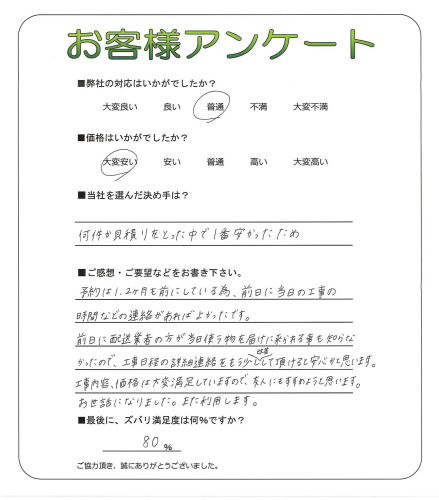 お客様アンケート
■弊社の対応はいかがでしたか？
大変良い　良い　普通　不満　大変不満
■価格はいかがでしたか？
大変安い　安い　普通　高い　大変高い
■当社を選んだ決め手は？
何件か見積りをとった中で1番安かったため
■ご感想・ご要望などをお書き下さい。
予約は1.2ヶ月も前にしている為、前日に当日の工事の
時間などの連絡があればよかったです。
前日に配送業者の方が当日使う物を届けに来られる事も知らな
かったので、工事日程の詳細連絡をもう少し改善して頂けると安心かと思います。
工事内容、価格は大変満足していますので、友人にもすすめようと思います。
お世話になりました。また利用します。
■最後に、ズバリ満足度は何%ですか？
80 %
ご協力頂き、誠にありがとうございました。